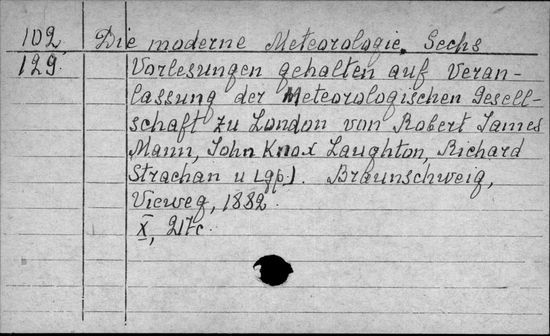 102. Die moderne Meteorologie. Sechs
129. Vorlesungen gehalten auf Veran-
lassung der Meteorologischen Gesell-
schaft zu London von Robert James
Mann, John Knox Laughton, Richard
Strachan u [др.]. Braunschweig,
Vieweg, 1882.
X, 217c.